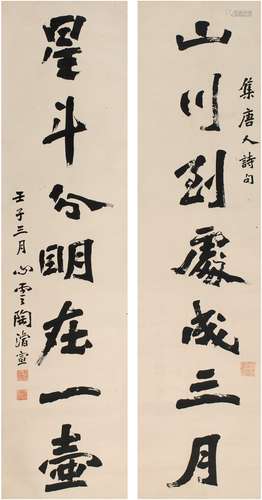 集唐人詩句
山川到處成三月
星斗分明在一壺
壬子三月心雲陶濬宣